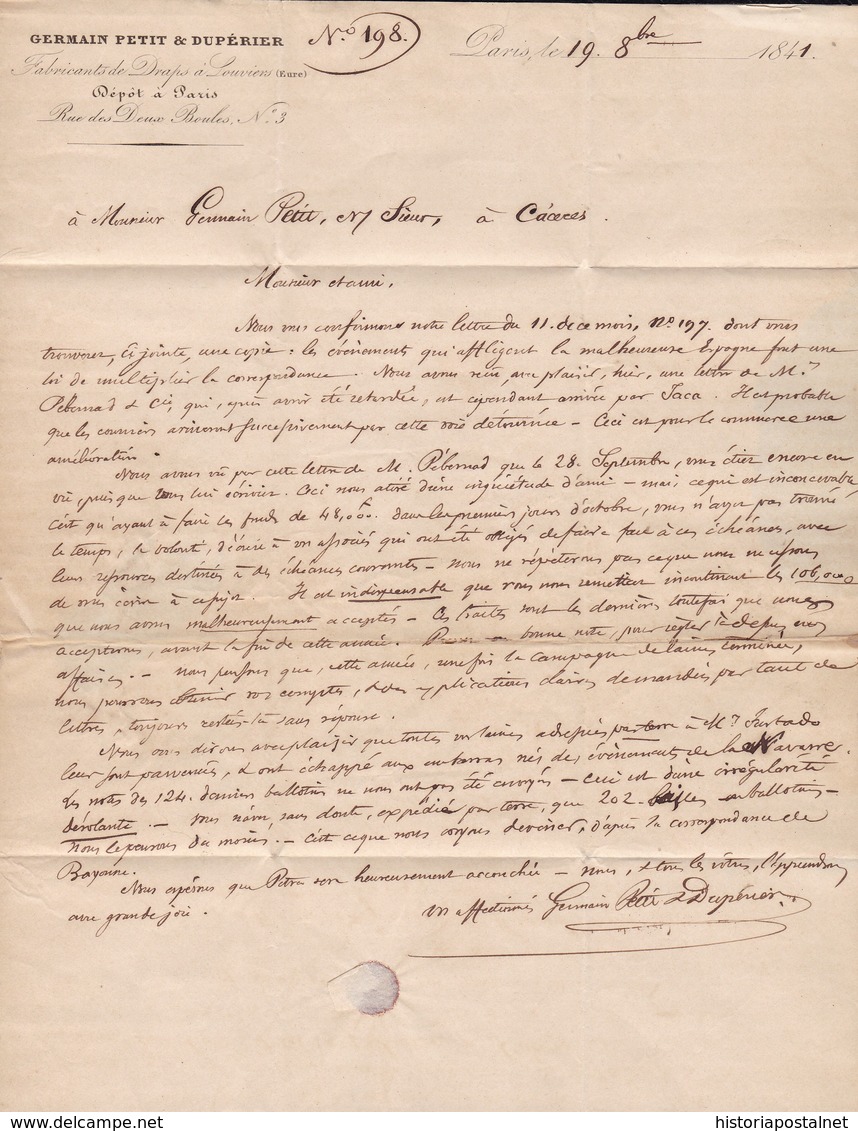 GERMAIN PETIT & DUPÉRIER
Fabricants de Draps à Louviers (Eure)
Dépôt à Paris
Rue des Deux Boules, N.° 3
N.° 198.
Paris, le 19. 8bre 1841.
à Monsieur Germain Petit, N/ Sieur, à Cáceres.
Monsieur et ami,
Nous vous confirmons notre lettre du 11. de ce mois, N.° 197. dont vous
trouverez, ci jointe, une copie : les évènements qui affligent la malheureuse Espagne font une
loi de multiplier la correspondance. Nous avons reçu, avec plaisir, hier, une lettre de M.r
Pébernad & Cie, qui, après avoir été retardée, est cependant arrivée par Jaca. Il est probable
que les courriers arriveront successivement par cette voie détournée – Ceci est pour le commerce une
amélioration.
Nous avons vu par cette lettre de M. Pébernad que le 28. Septembre, vous étiez encore en
vie, puisque vous lui écriviez. Ceci nous a tiré d'une inquiétude d'ami – mais, ce qui est inconcevable
c'est qu'ayant à faire les fonds de 48,000. dans les premiers jours d'octobre, vous n'ayez pas trouvé
le temps, la volonté, d'écrire à vos associés qui ont été obligés de faire face à ces échéances, avec
leurs ressources destinées à des échéances courantes – nous ne répéterons pas ce que nous ne cessons
de vous écrire à ce sujet. Il est indispensable que vous nous remettiez incontinent les 106,000
que nous avons malheureusement acceptés – Ces traites sont les dernières toutefois que nous
accepterons, avant la fin de cette année. bonne note, pour régler là-dessus vos
affaires. – nous pensons que, cette année, une fois la campagne de laines terminée,
nous pourrons obtenir vos comptes, & des explications claires demandées par tant de
lettres, toujours restées là sans réponse.
Nous vous dirons avec plaisir que toutes vos laines adressées par terre à M.r Furtado
leur sont parvenues, & ont échappé aux embarras nés des évènements de la Navarre.
Les notes des 124. derniers ballotins ne nous ont pas été envoyés – ceci est d'une irrégularité
désolante. – vous n'avez, sans doute, expédié par terre, que 202. balles ou ballotins –
nous le pensons du moins. – C'est ce que nous croyons deviner, d'après la correspondance de
Bayonne.
Nous espérons que Petra sera heureusement accouchée – nous, & tous les vôtres, l'apprendrons
avec grande joie.
Vos affectionnés Germain Petit & Dupérier
historiapostalnet